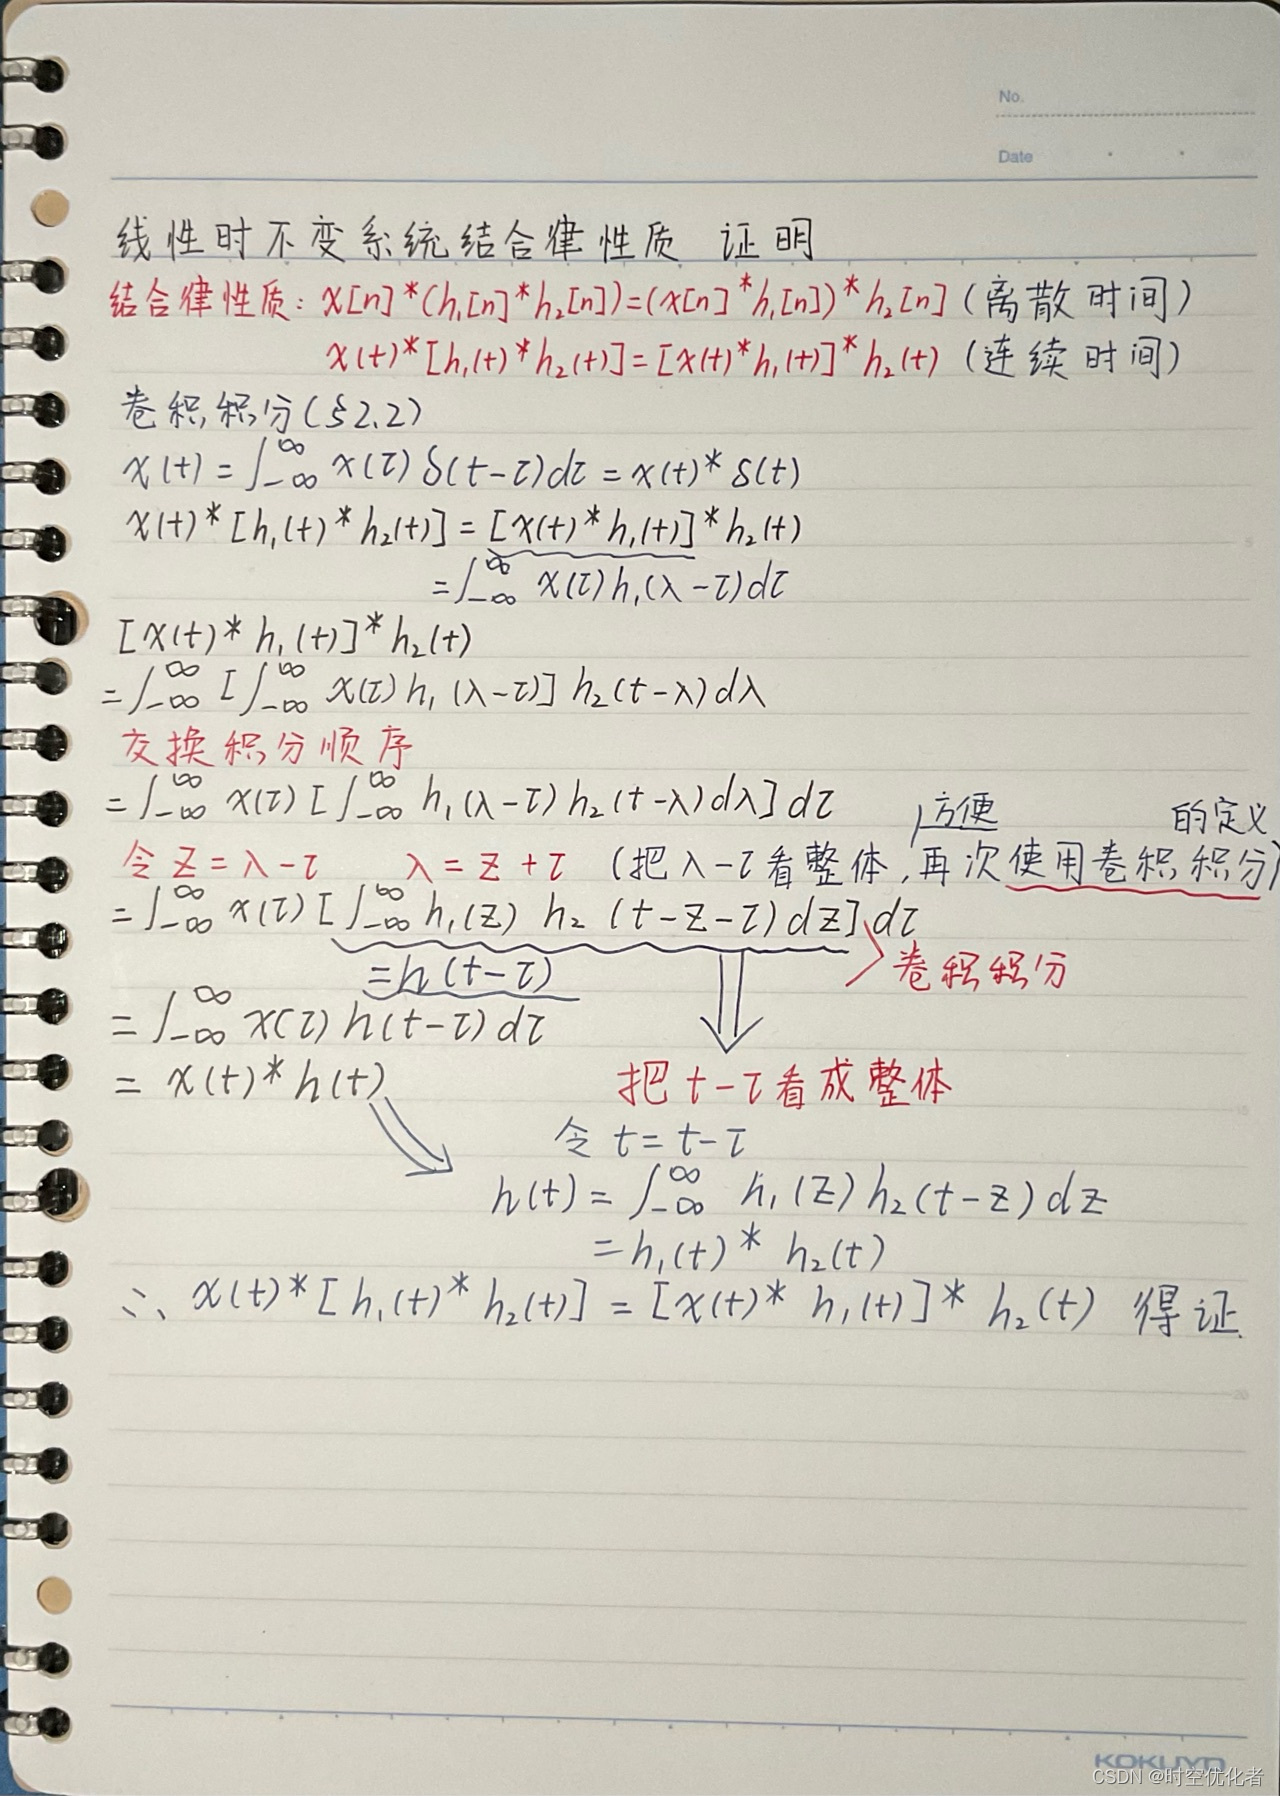 No.
Date
线性时不变系统结合律性质 证明
结合律性质: x[n]*(h₁[n]*h₂[n])=(x[n]*h₁[n])*h₂[n] (离散时间)
x(t)*[h₁(t)*h₂(t)]=[x(t)*h₁(t)]*h₂(t) (连续时间)
卷积积分(§2.2)
x(t)=∫_{-∞}^{∞} x(τ)δ(t-τ)dτ=x(t)*δ(t)
x(t)*[h₁(t)*h₂(t)]=[x(t)*h₁(t)]*h₂(t)
=∫_{-∞}^{∞} x(τ)h₁(λ-τ)dτ
[x(t)*h₁(t)]*h₂(t)
=∫_{-∞}^{∞} [∫_{-∞}^{∞} x(τ)h₁(λ-τ)]h₂(t-λ)dλ
交换积分顺序
=∫_{-∞}^{∞} x(τ)[∫_{-∞}^{∞} h₁(λ-τ)h₂(t-λ)dλ]dτ
方便 的定义
令z=λ-τ λ=z+τ (把λ-τ看整体,再次使用卷积积分)
=∫_{-∞}^{∞} x(τ)[∫_{-∞}^{∞} h₁(z) h₂(t-z-τ)dz]dτ
=h(t-τ) 卷积积分
=∫_{-∞}^{∞} x(τ)h(t-τ)dτ
=x(t)*h(t) 把t-τ看成整体
令t=t-τ
h(t)=∫_{-∞}^{∞} h₁(z)h₂(t-z)dz
=h₁(t)*h₂(t)
∴x(t)*[h₁(t)*h₂(t)]=[x(t)*h₁(t)]*h₂(t) 得证.
KOKUYO
CSDN @时空优化者